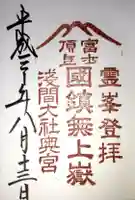 霊峯登拝
富士
頂上
國鎮無上嶽
浅間大社奥宮
平成二十年八月十三日